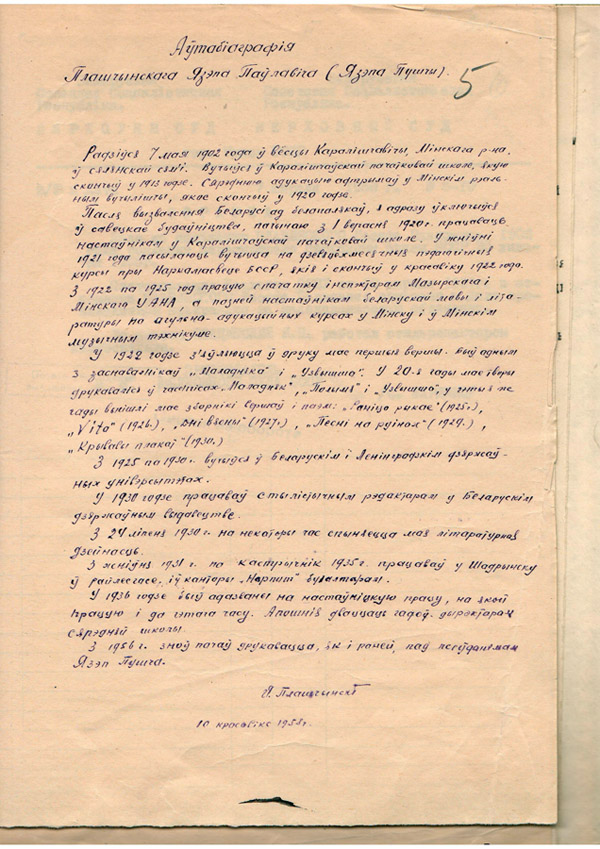 Аўтабіаграфія
Плашчынскага Язэпа Паўлавіча (Язэпа Пушчы).
5
Радзіўся 7 мая 1902 года ў вёсцы Каралішчавічы, Мінскага р-на,
ў сялянскай сям'і. Вучыўся ў Каралішчаўскай пачаткавай школе, якую
скончыў у 1913 годзе. Сярэднюю адукацыю афтрымаў у Мінскім рэаль-
ным вучылішчы, якое скончыў у 1920 годзе.
Пасля вызвалення Беларусі ад белапалякаў, я адразу ўключыўся
ў савецкае будаўніцтва, пачынаю з 1 верасня 1920 г. працаваць
настаўнікам у Каралішчаўскай пачаткавай школе. У жніўні
1921 года пасылаюць вучыцца на дзевяцімесячныя педагагічныя
курсы пры Наркамасвеце БССР, якія і скончыў у красавіку 1922 года.
З 1922 па 1925 год працую спачатку інспектарам Мазырскага і
Мінскага УАНА, а пазней настаўнікам беларускай мовы і літа-
ратуры на агульна-адукацыйных курсах у Мінску і ў Мінскім
музычным тэхнікуме.
У 1922 годзе з'яўляюцца ў друку мае першыя вершы. Быў адным
з заснавальнікаў „Маладняка" і „Узвышша". У 20-я гады мае творы
друкаваліся ў часопісах „Маладняк", „Полымя" і „Узвышша", у гэтыя ж
гады выйшлі мае зборнікі вершаў і паэм: „Раніца рыкае" (1925 г.),
„Vita" (1926 г.), „Дні вясны" (1927 г.), „Песні на руінах" (1929 г.),
„Крывавы плакат" (1930 г.)
З 1925 па 1930 г. вучыўся ў Беларускім і Ленінградскім дзяржаў-
ных універсітэтах.
У 1930 годзе працаваў стылістычным рэдактарам у Беларускім
дзяржаўным выдавецтве.
З 24 ліпеня 1930 г. на некаторы час спыняецца мая літаратурная
дзейнасць.
З жніўня 1931 г. па кастрычнік 1935 г. працаваў у Шадрынску
ў райлесгасе, і ў канторы „Нарпит" бугалтарам.
У 1936 годзе быў адазваны на настаўніцкую працу, на якой
працую і да гэтага часу. Апошнія дваццаць гадоў дырэктарам
сярэдняй школы.
З 1956 г. зноў пачаў друкавацца, як і раней, пад псеўданімам
Язэп Пушча.
Я. Плашчынскі
10 красавіка 1958 г.